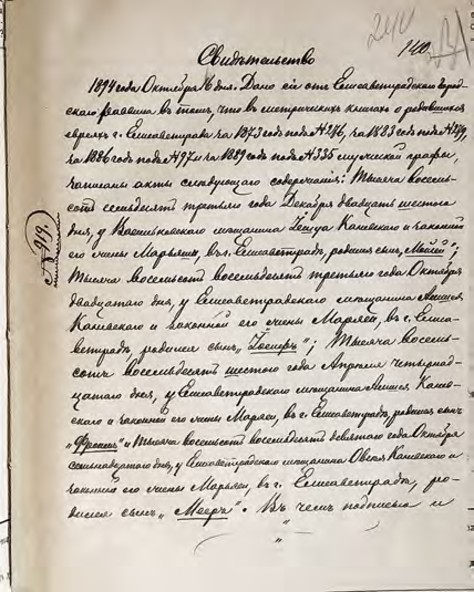 240
140
Свидѣтельство
1894 года Октября 16 дня. Дано сіе отъ Елисаветградскаго Город-
скаго раввина въ томъ, что въ метрическихъ книгахъ о родившихся
евреяхъ г. Елисаветграда за 1873 годъ подъ № 276, за 1883 годъ подъ №
за 1886 годъ подъ № 97 и за 1889 годъ № 335 мужеской графы,
записаны акты слѣдующаго содержанія: Тысяча восемь-
сотъ семьдесятъ третьяго года Декабря двадцать шестого
дня, у Васильковскаго мѣщанина Каневскаго и законной
его жены Марьяши, въ г. Елисаветградѣ, родился сынъ „ “;
Тысяча восемьсотъ восемьдесятъ третьяго года Октября
двадцатаго дня, у Елисаветградскаго мѣщанина
Каневскаго и законной его жены Марьяси, въ г. Елиса-
ветградѣ, родился сынъ „ “; Тысяча восемь-
сотъ восемьдесятъ шестого года Апрѣля четырнад-
цатаго дня, у Елисаветградскаго мѣщанина Канев-
скаго и законной его жены Марьяси, въ г. Елисаветградѣ, родился сынъ
„ “ и Тысяча восемьсотъ восемьдесятъ девятаго года Октября
семьнадцатаго дня, у Елисаветградскаго мѣщанина Овсея Каневскаго и
законной его жены Марьяси, въ г. Елисаветградѣ, ро-
дился сынъ „Мееръ“. Въ чемъ подписью и
№ 919.